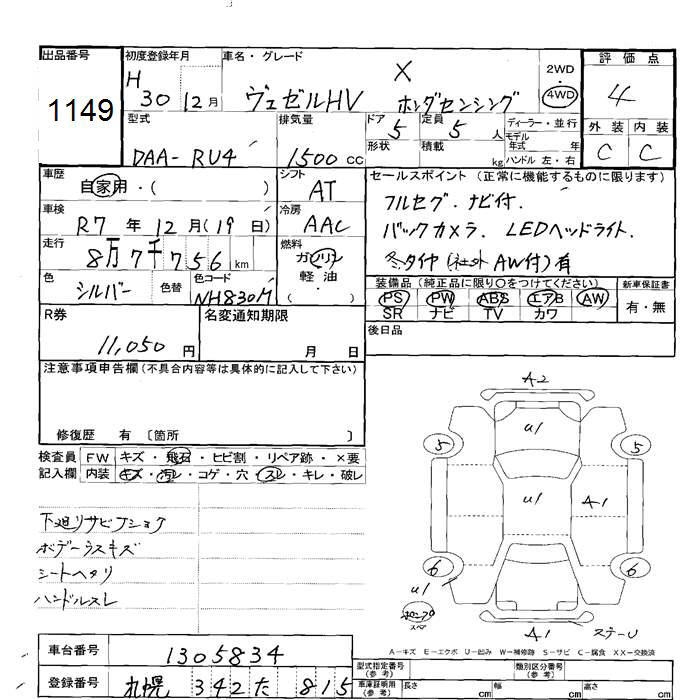 出品番号
1149
初度登録年月
H 30 12月
車名・グレード
X
ヴェゼルHV ホンダセンシング
2WD
4WD
評価点
4
外装 内装
C C
型式
DAA-RU4
排気量
1500 cc
ドア 5
形状
定員 5 人
積載 kg
ディーラー・並行
モデル年式 年
ハンドル 左・右
車歴
自家用・( )
シフト
AT
セールスポイント (正常に機能するものに限ります)
フルセグ. ナビ付.
バックカメラ. LEDヘッドライト.
冬タイヤ(社外AW付)有
車検
R7年12月(19日)
冷房
AAC
走行
8万7千756km
燃料
ガソリン
・
軽油
( )
色
シルバー
色替
色コード
NH830M
装備品 (純正品に限り○をつけてください)
PS PW ABS エアB AW
SR ナビ TV カワ
新車保証書
有・無
R券
11,050 円
名変通知期限
月 日
後日品
注意事項申告欄 (不具合内容等は具体的に記入して下さい)
修復歴 有 〔箇所 〕
検査員記入欄
FW キズ・飛石・ヒビ割・リペア跡・×要
内装 キズ・汚レ・コゲ・穴・スレ・キレ・破レ
下廻りサビフショク
ボデーラスキズ
シートヘタリ
ハンドルスレ
A2
U1
5 5
U1
A1
6 6
U1
スペ
A1
A-キズ E-エクボ U-凹み W-補修跡 S-サビ C-腐食 XX-交換済
車台番号
1305834
登録番号
札幌 342 た 815
型式指定番号
(参考)
類別区分番号
(参考)
車庫証明用
(参考)
長さ cm
幅 cm
高さ cm